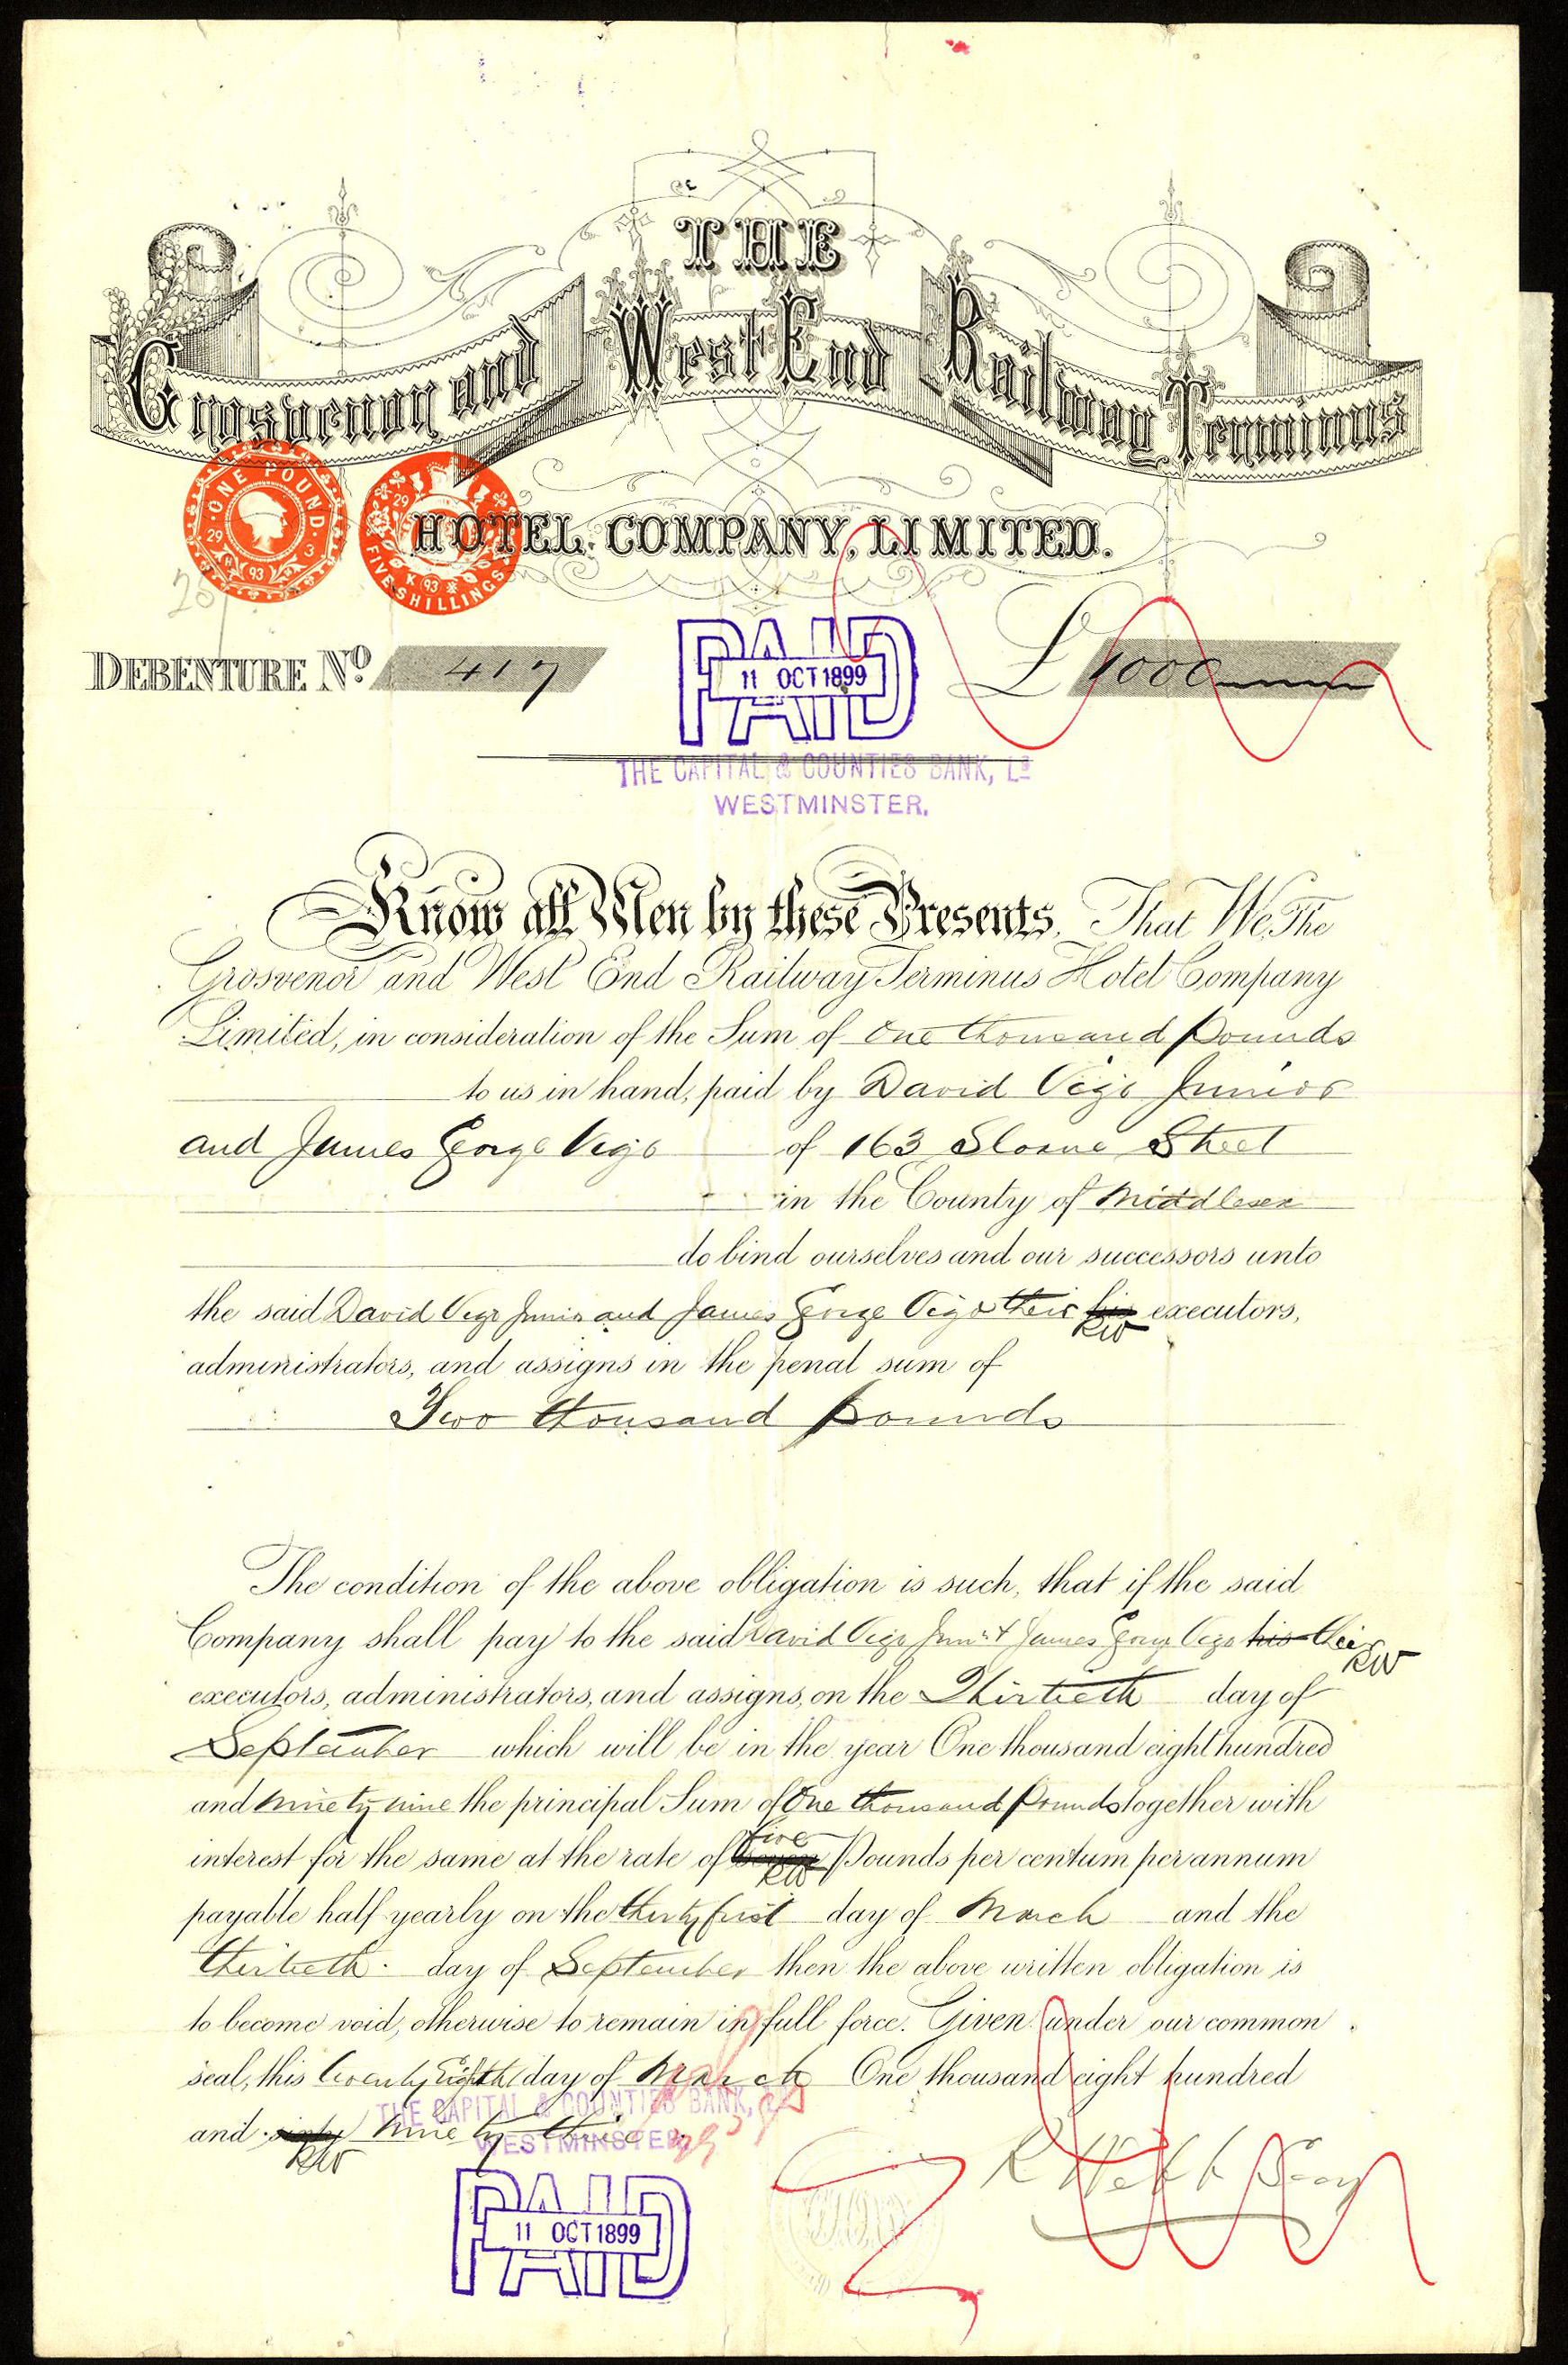 THE
Grosvenor and West End Railway Terminus
HOTEL COMPANY, LIMITED.
ONE POUND
29 3
93
29
K 93
FIVE SHILLINGS
DEBENTURE No. 417
PAID
11 OCT 1899
£1000
THE CAPITAL & COUNTIES BANK, Ld
WESTMINSTER.
Know all Men by these Presents, That We The
Grosvenor and West End Railway Terminus Hotel Company
Limited, in consideration of the Sum of One thousand Pounds
to us in hand, paid by David Vigo Junior
and James George Vigo of 163 Sloane Street
in the County of Middlesex
do bind ourselves and our successors unto
the said David Vigo Junior and James George Vigo their his executors,
RW
administrators, and assigns in the penal sum of
Two thousand pounds
The condition of the above obligation is such, that if the said
Company shall pay to the said David Vigo Junr & James George Vigo his their
RW
executors, administrators, and assigns, on the Thirtieth day of
September which will be in the year One thousand eight hundred
and ninety nine the principal Sum of One thousand Pounds together with
five
interest for the same at the rate of Pounds per centum per annum
RW
payable half yearly on the thirty first day of March and the
thirtieth day of September then the above written obligation is
to become void, otherwise to remain in full force. Given under our common
seal, this twenty Eighth day of March One thousand eight hundred
and sixty ninety three
RW
THE CAPITAL & COUNTIES BANK, Ld
WESTMINSTER.
PAID
11 OCT 1899
R Webb Secy